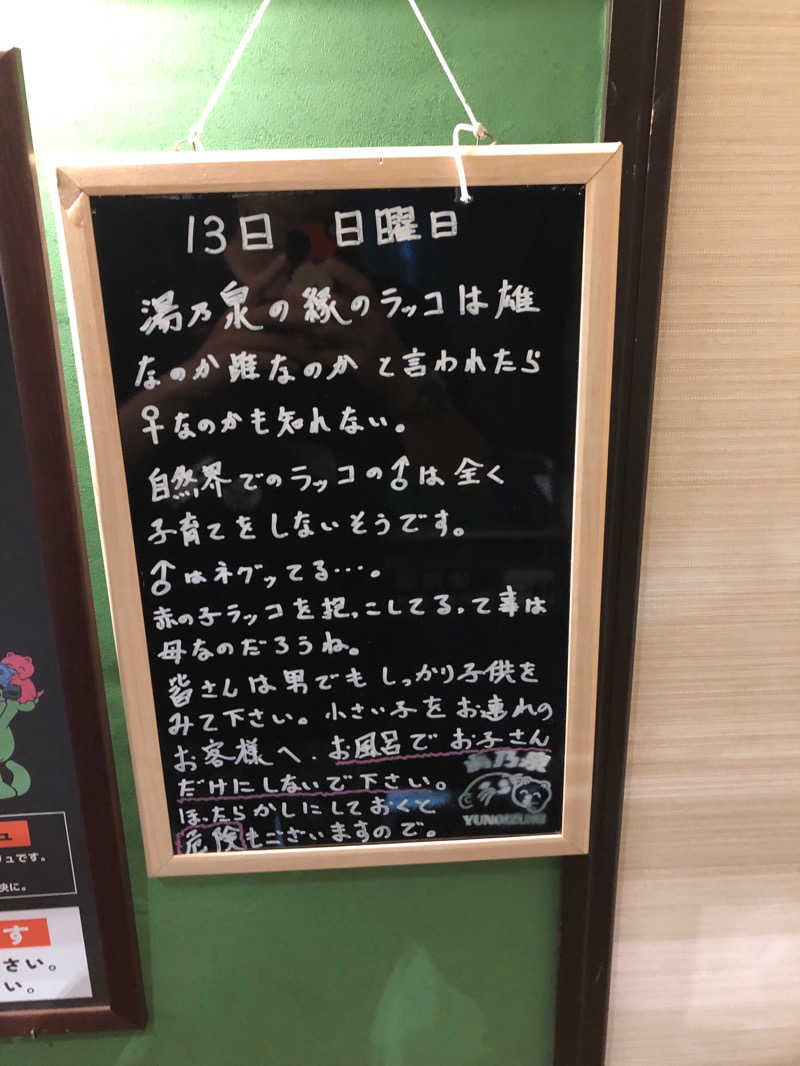 13日 日曜日
湯乃泉の緑のラッコは雄
なのか雌なのかと言われたら
♀なのかも知れない。
自然界でのラッコの♂は全く
子育てをしないそうです。
♂はネグッてる…。
赤の子ラッコを抱っこしてるって事は
母なのだろうね。
皆さんは男でもしっかり子供を
みて下さい。小さい子をお連れの
お客様へ、お風呂でお子さん
だけにしないで下さい。
ほったらかしにしておくと
危険もございますので。
湯乃泉
YUNOIZUMI
ュ
ュです。
に。
す
さい。
い。